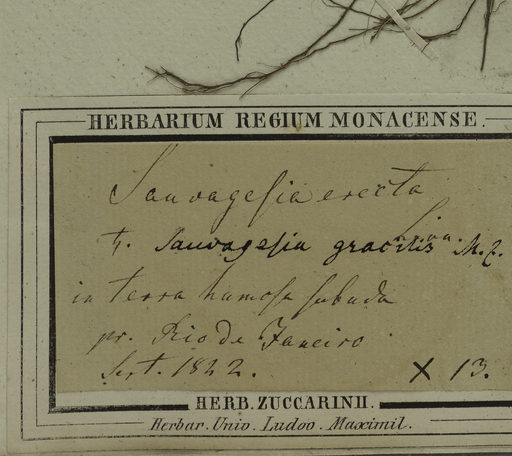 HERBARIUM REGIUM MONACENSE.
Sauvagesia erecta
Lin.
Sauvagesia gracilis M. Z.
in terra humosa
pr. Rio de Janeiro
1822.
X 13.
HERB. ZUCCARINII.
Herbar. Univ. Ludov. Maximil.